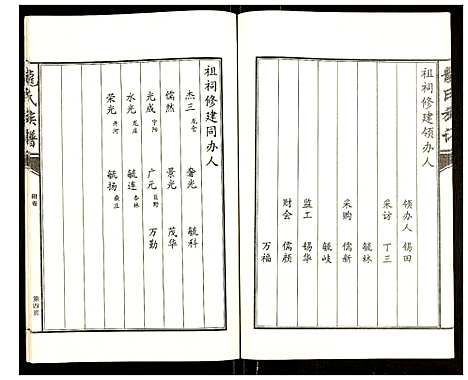 龙氏族谱
祖祠修建领办人
领办人 锡田
采访 丁三
毓林
采购 儒新
毓岐
监工 锡华
财会 儒颜
万福
祖祠修建同办人
杰三 奢光 毓科
儒然 景光 茂华
光成 宁阳 广元 巨野 万勤
水光 龙庄 毓连 杏林
荣光 齐河 毓扬
龙氏族谱
附卷
第四页